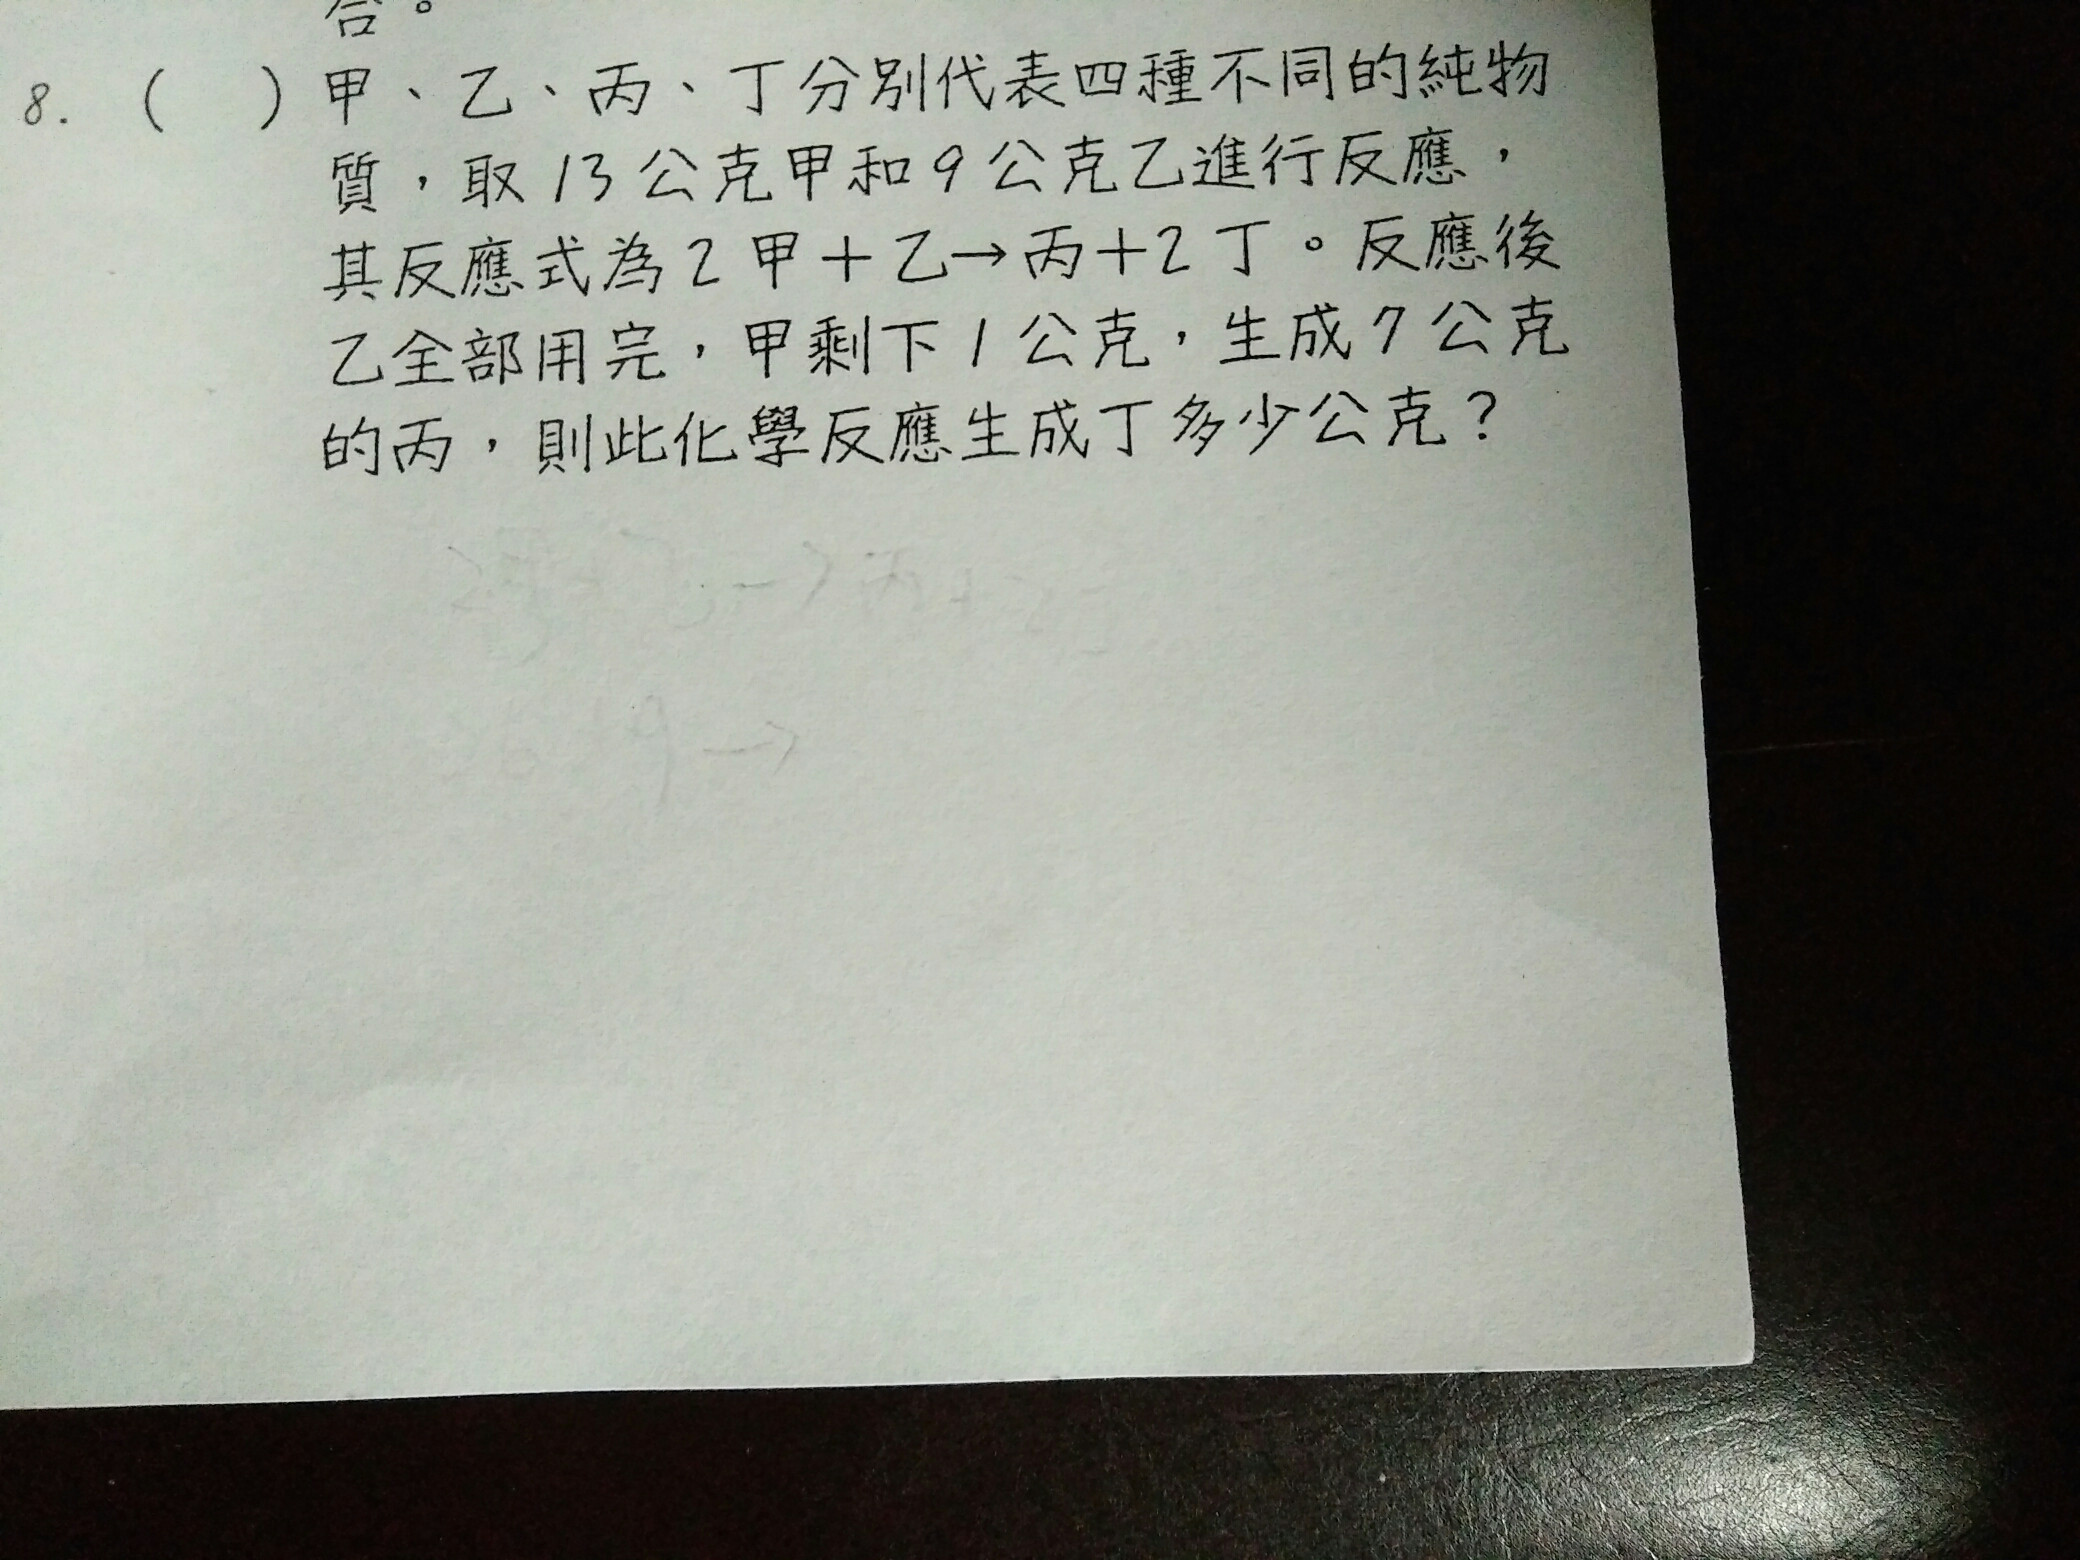 合。
8. ( ) 甲、乙、丙、丁分別代表四種不同的純物
質，取13公克甲和9公克乙進行反應，
其反應式為2甲＋乙→丙＋2丁。反應後
乙全部用完，甲剩下1公克，生成7公克
的丙，則此化學反應生成丁多少公克？